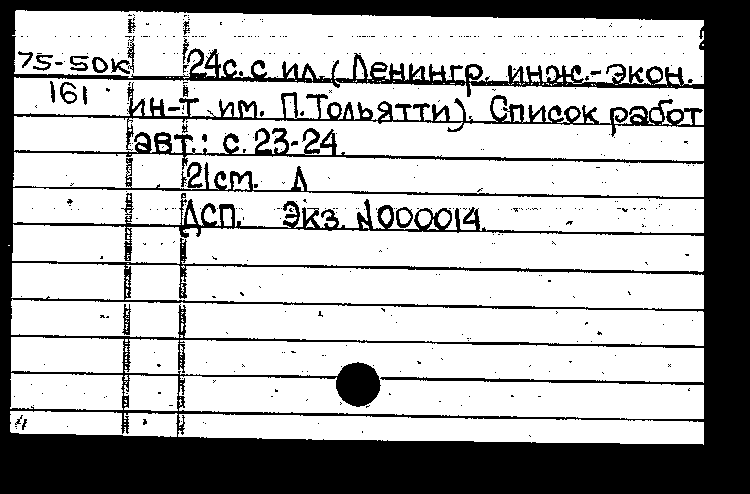 75-50к 24с. с ил. (Ленингр. инж.-экон.
161 ин-т им. П.Тольятти). Список работ
авт.: с. 23-24.
21см. Д
ДСП. Экз. N000014.